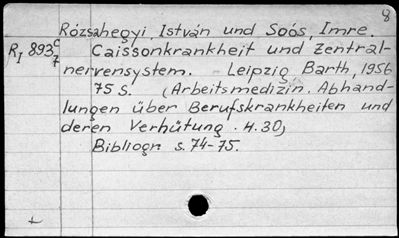 8
Rózsahegyi, István und Soós, Imre.
R I 893 c/7 Caissonkrankheit und Zentral-
nervensystem. - Leipzig, Barth, 1956
75 S. (Arbeitsmedizin. Abhand-
lungen über Berufskrankheiten und
deren Verhütung. H. 30)
Bibliogr. s. 74-75.